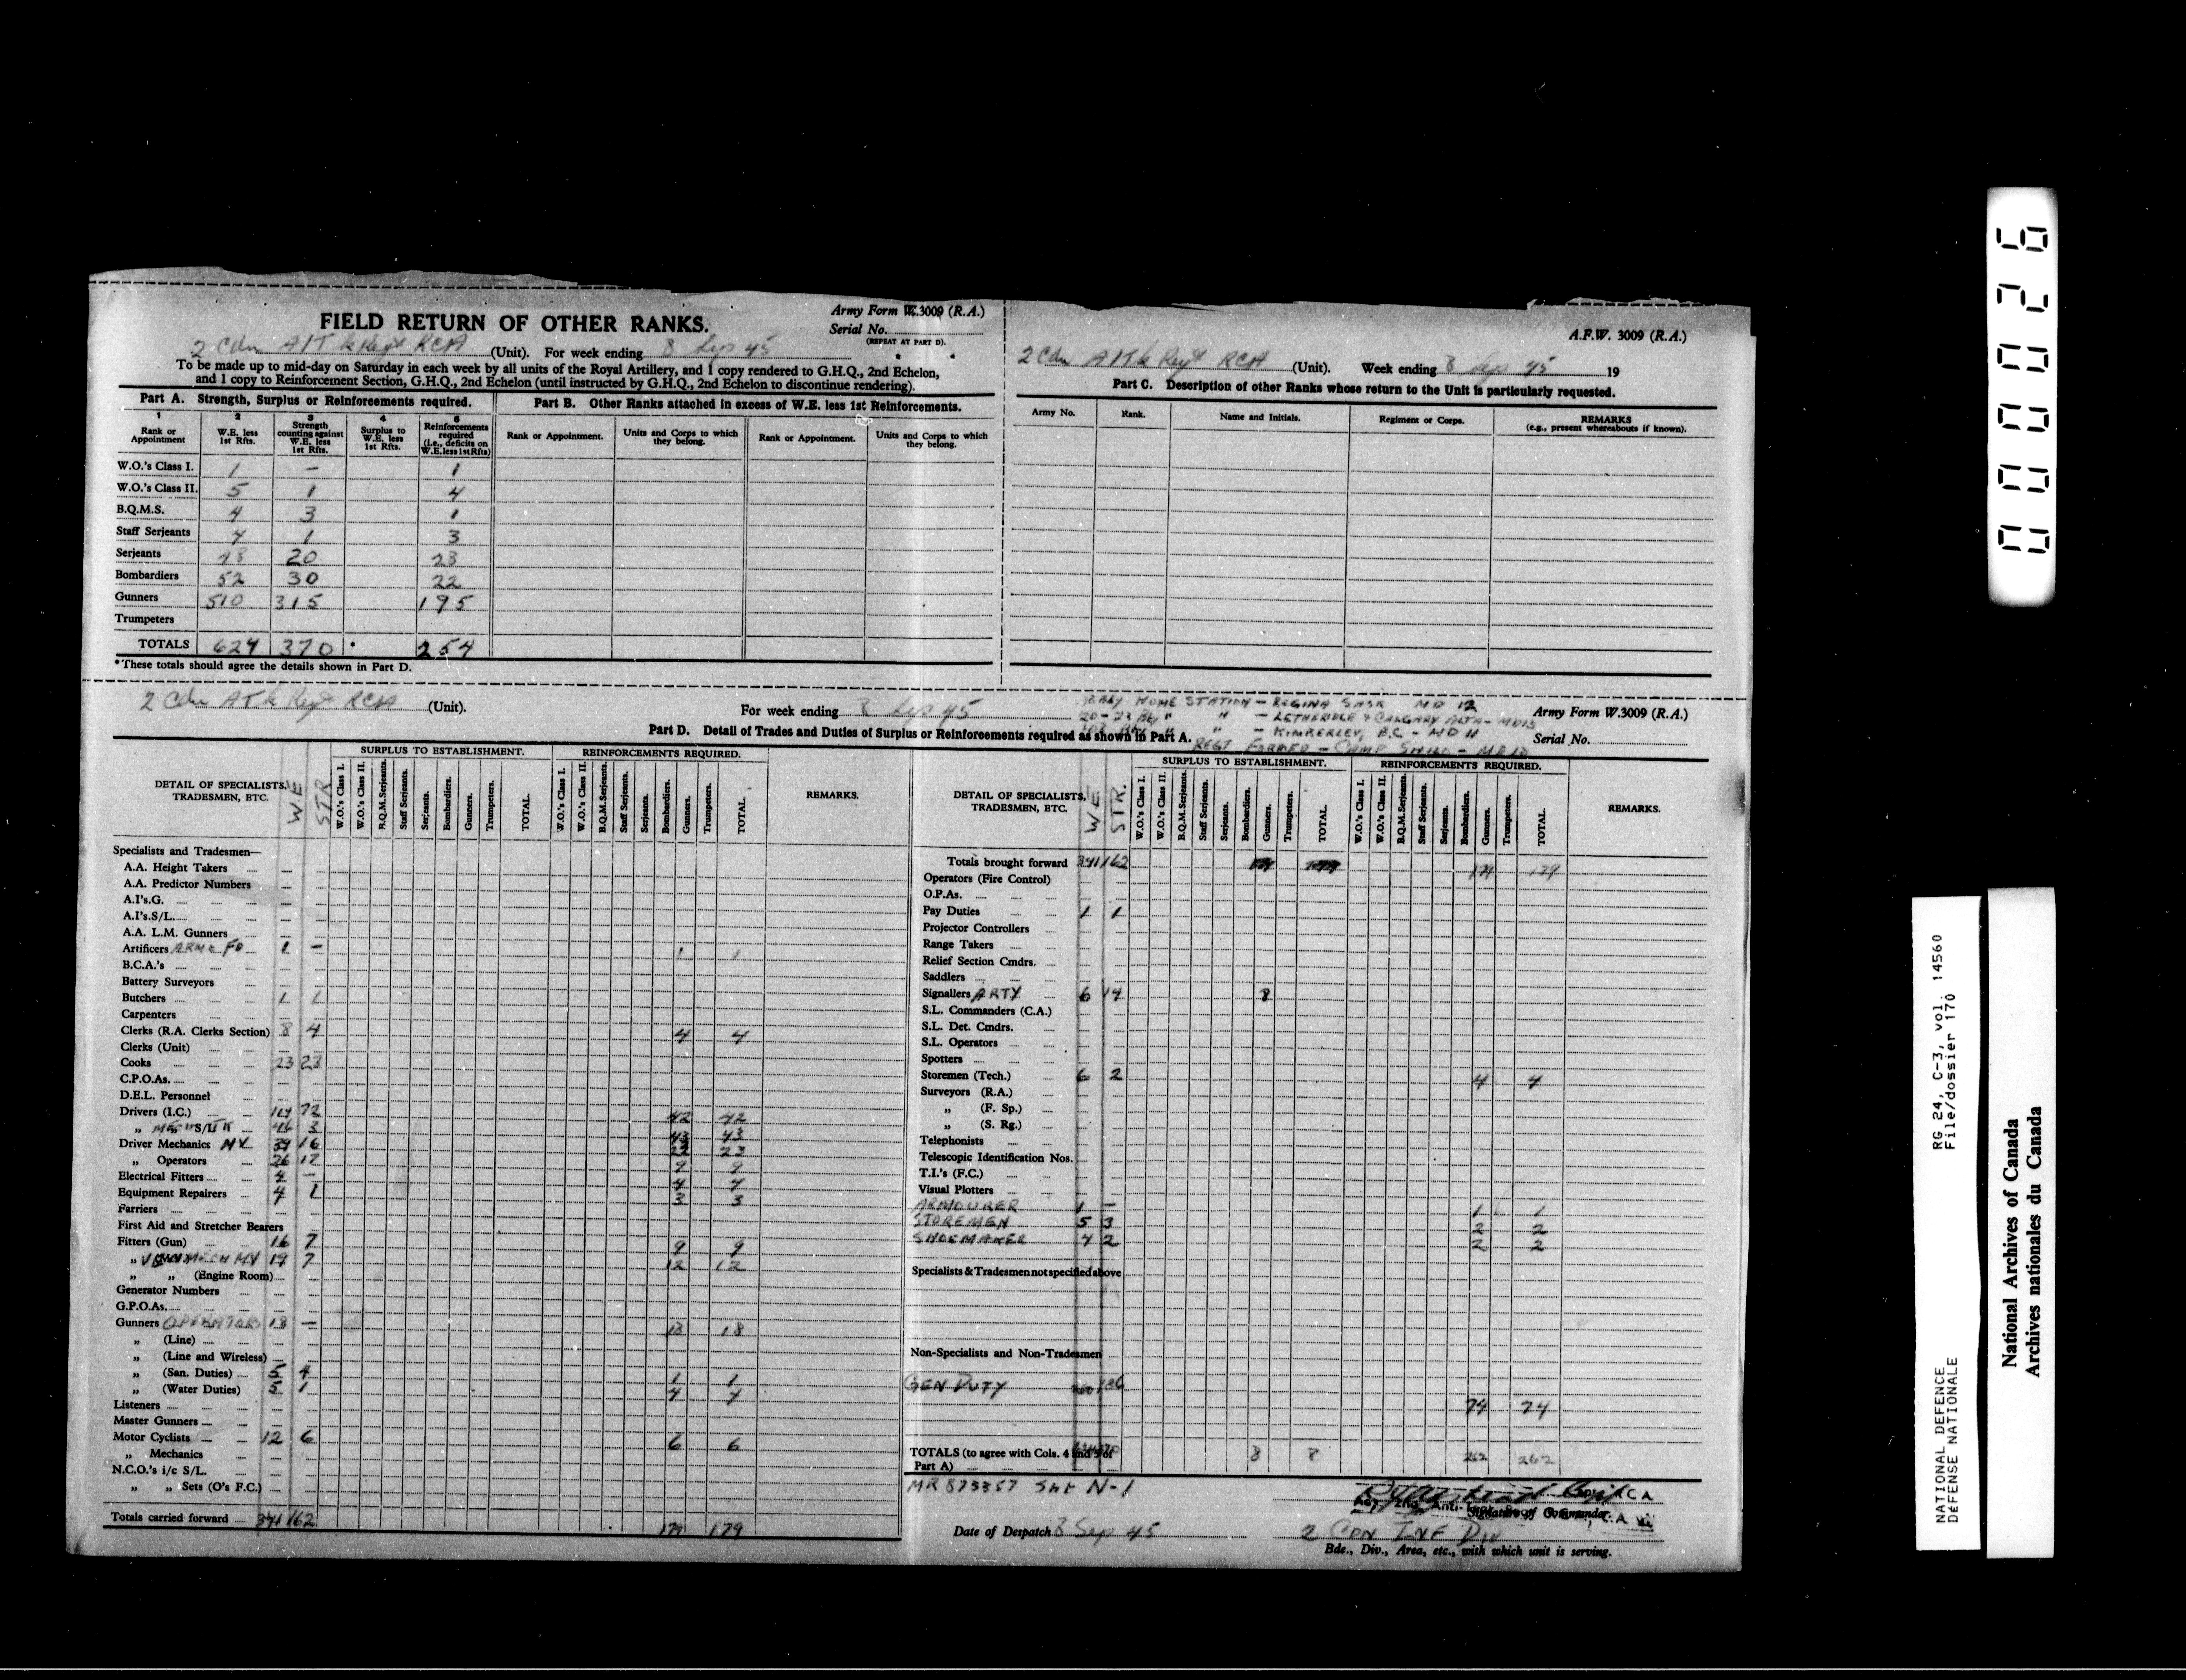 FIELD RETURN OF OTHER RANKS.
Army Form W.3009 (R.A.)
Serial No.
(REPEAT AT PART D).
2 Cdn A/Tk Regt RCA (Unit). For week ending 8 Sep 45
To be made up to mid-day on Saturday in each week by all units of the Royal Artillery, and 1 copy rendered to G.H.Q., 2nd Echelon,
and 1 copy to Reinforcement Section, G.H.Q., 2nd Echelon (until instructed by G.H.Q., 2nd Echelon to discontinue rendering).
Part A. Strength, Surplus or Reinforcements required.
1 2 3 4 5
Rank or Appointment
W.E. less 1st Rfts.
Strength counting against W.E. less 1st Rfts.
Surplus to W.E. less 1st Rfts.
Reinforcements required (i.e., deficits on W.E. less 1st Rfts)
W.O.'s Class I. 1 – 1
W.O.'s Class II. 5 1 4
B.Q.M.S. 4 3 1
Staff Serjeants 4 1 3
Serjeants 48 20 28
Bombardiers 52 30 22
Gunners 510 315 195
Trumpeters
TOTALS 624 370 254
*These totals should agree the details shown in Part D.
Part B. Other Ranks attached in excess of W.E. less 1st Reinforcements.
Rank or Appointment.
Units and Corps to which they belong.
Rank or Appointment.
Units and Corps to which they belong.
A.F.W. 3009 (R.A.)
2 Cdn A/Tk Regt RCA (Unit). Week ending 8 Sep 45 19
Part C. Description of other Ranks whose return to the Unit is particularly requested.
Army No.
Rank.
Name and Initials.
Regiment or Corps.
REMARKS
(e.g., present whereabouts if known).
2 Cdn A Tk Regt RCA (Unit).
For week ending 8 Sep 45
Bty HOME STATION – REGINA SASK MD 12
20-23 Bty " " – LETHBRIDGE & CALGARY ALTA – MD13
108 Bty " " – KIMBERLEY, B.C – MD 11
REGT FORMED – CAMP SHILO – MD 10
Army Form W.3009 (R.A.)
Serial No.
Part D. Detail of Trades and Duties of Surplus or Reinforcements required as shown in Part A.
DETAIL OF SPECIALISTS, TRADESMEN, ETC.
WE
STR
SURPLUS TO ESTABLISHMENT.
W.O.'s Class I.
W.O.'s Class II.
B.Q.M.Serjeants.
Staff Serjeants.
Serjeants.
Bombardiers.
Gunners.
Trumpeters.
TOTAL.
REINFORCEMENTS REQUIRED.
W.O.'s Class I.
W.O.'s Class II.
B.Q.M.Serjeants.
Staff Serjeants.
Serjeants.
Bombardiers.
Gunners.
Trumpeters.
TOTAL.
REMARKS.
Specialists and Tradesmen—
A.A. Height Takers – –
A.A. Predictor Numbers – –
A.I's.G. – –
A.I's.S/L. – –
A.A. L.M. Gunners – –
Artificers 1 – 1 1
B.C.A.'s – –
Battery Surveyors – –
Butchers 1 1
Carpenters – –
Clerks (R.A. Clerks Section) 8 4 4 4
Clerks (Unit)
Cooks 23 23
C.P.O.As. – –
D.E.L. Personnel – –
Drivers (I.C.) 114 72 42 42
„ S/L 46 3 43 43
Driver Mechanics MV 39 16 23 23
„ Operators 26 17 9 9
Electrical Fitters 4 – 4 4
Equipment Repairers 4 1 3 3
Farriers – –
First Aid and Stretcher Bearers
Fitters (Gun) 16 7 9 9
„ MECH MV 19 7 12 12
„ „ (Engine Room) – –
Generator Numbers – –
G.P.O.As. – –
Gunners OPERATORS 18 – 18 18
„ (Line) – –
„ (Line and Wireless) –
„ (San. Duties) 5 4 1 1
„ (Water Duties) 5 1 4 4
Listeners – –
Master Gunners – –
Motor Cyclists 12 6 6 6
„ Mechanics – –
N.C.O.'s i/c S/L. – –
„ „ Sets (O's F.C.) – –
Totals carried forward 341 162 179 179
DETAIL OF SPECIALISTS, TRADESMEN, ETC.
WE
STR.
SURPLUS TO ESTABLISHMENT.
W.O.'s Class I.
W.O.'s Class II.
B.Q.M.Serjeants.
Staff Serjeants.
Serjeants.
Bombardiers.
Gunners.
Trumpeters.
TOTAL.
REINFORCEMENTS REQUIRED.
W.O.'s Class I.
W.O.'s Class II.
B.Q.M.Serjeants.
Staff Serjeants.
Serjeants.
Bombardiers.
Gunners.
Trumpeters.
TOTAL.
REMARKS.
Totals brought forward 341 162 179 179
Operators (Fire Control)
O.P.As.
Pay Duties 1 1
Projector Controllers
Range Takers
Relief Section Cmdrs.
Saddlers
Signallers ARTY 6 14 8
S.L. Commanders (C.A.)
S.L. Det. Cmdrs.
S.L. Operators
Spotters
Storemen (Tech.) 6 2 4 4
Surveyors (R.A.)
„ (F. Sp.)
„ (S. Rg.)
Telephonists
Telescopic Identification Nos.
T.I.'s (F.C.)
Visual Plotters
ARMOURER 1 – 1 1
STOREMEN 5 3 2 2
SHOEMAKER 4 2 2 2
Specialists & Tradesmen not specified above
Non-Specialists and Non-Tradesmen
GEN DUTY 260 186 74 74
TOTALS (to agree with Cols. 4 and 5 of Part A) 8 8 262 262
MR 873357 Sht N-1
Date of Despatch 8 Sep 45
RCA
Signature of Commander.
2 CDN INF DIV
Bde., Div., Area, etc., with which unit is serving.
000026
RG 24, C-3, vol. 14560
File/dossier 170
NATIONAL DEFENCE
DÉFENSE NATIONALE
National Archives of Canada
Archives nationales du Canada